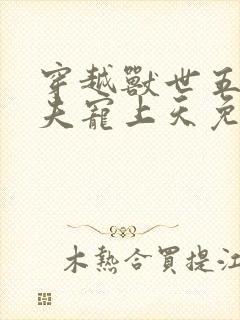 穿越獸世五
夫寵上天免
木熱合買提江